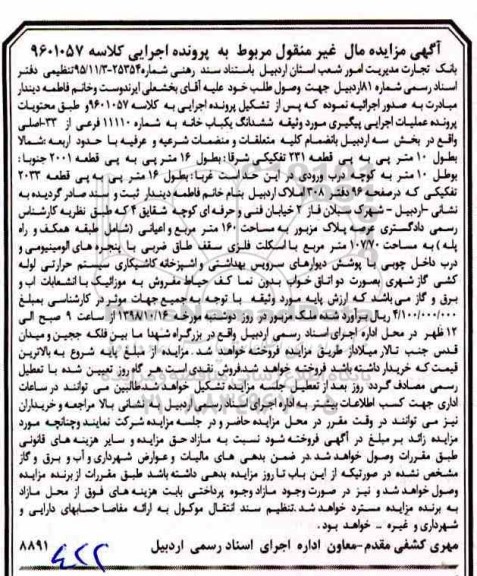 آگهی مزایده مال غیر منقول مربوط به پرونده اجرایی کلاسه ۹۶۰۱۰۵۷
بانک تجارت مدیریت امور شعب استان اردبیل باستناد سند رهنی شماره۲۵۳۵۴-۹۵/۱۱/۳تنظیمی دفتر
اسناد رسمی شماره ۸۱اردبیل جهت وصول طلب خود علیه آقای بخشعلی ایرندوست وخانم فاطمه دیندار
مبادرت به صدور اجرائیه نموده که پس از تشکیل پرونده اجرایی به کلاسه ۹۶۰۱۰۵۷و طبق محتویات
پرونده عملیات اجرایی پیگیری مورد وثیقه ششدانگ یکباب خانه به شماره ۱۱۱۱۰ فرعی از ۳۳-اصلی
واقع در بخش سه اردبیل بانضمام کلیه متعلقات و منضمات شرعیه و عرفیه با حدود اربعه :شمالا
بطول ۱۰ متر پی به پی قطعه ۲۳۱ تفکیکی شرقا: بطول ۱۶ متر پی به پی قطعه ۲۰۰۱ جنوبا:
بوطل ۱۰ متر به کوچه درب ورودی در این حد است غربا: بطول ۱۶ متر پی به پی قطعه ۲۰۳۳
تفکیکی که درصفحه ۹۶ دفتر ۳۰۸ املاک اردبیل بنام خانم فاطمه دیندار ثبت و سند صادر گردیده به
نشانی -اردبیل - شهرک سبلان فاز ۲ خیابان فنی و حرفه ای کوچه شقایق ۴ که طبق نظریه کارشناس
رسمی دادگستری عرصه پلاک مزبور به مساحت ۱۶۰ متر مربع و اعیانی (شامل طبقه همکف و راه
پله) به مساحت ۱۰۷/۷۰ متر مربع با اسکلت فلزی سقف طاق ضربی با پنجره های الومینیومی و
درب داخل چوبی با پوشش دیوارهای سرویس بهداشتی و اشپزخانه کاشیکاری سیستم حرارتی لوله
کشی گاز شهری بصورت دو اتاق خواب بدون نما کف حیاط مفروش به موزائیک با انشعابات آب و
برق و گاز می باشد که ارزش پایه مورد وثیقه با توجه به جمیع جهات موثر در کارشناسی بمبلغ
۴/۱۰۰/۰۰۰/۰۰۰ ریال برآورد شده ملک مزبور در روز دوشنبه مورخه ۱۳۹۸/۱۰/۱۶ از ساعت ۹ صبح الی
۱۲ ظهر در محل اداره اجرای اسناد رسمی اردبیل واقع در بزرگراه شهدا ما بین فلکه ججین و میدان
قدس جنب تالار میلاداز طریق مزایده فروخته خواهد شد. مزایده از مبلغ پایه شروع به بالاترین
قیمت که خریدار داشته باشد فروخته خواهد شد.فروش نقدی است هر گاه روز تعیین شده با تعطیل
رسمی مصادف گردد روز بعد از تعطیل جلسه مزایده تشکیل خواهد شد.طالبین می توانند در ساعات
اداری جهت کسب اطلاعات بیشتر به اداره اجرای اسناد اردبیل به نشانی بالا مراجعه و خریداران
نیز می توانند در وقت مقرر در محل مزایده حاضر و در جلسه مزایده شرکت نمایند وچنانچه مورد
مزایده زائد بر مبلغ در آگهی فروخته شود نسبت به مازاد حق مزایده و سایر هزینه های قانونی
طبق مقررات وصول خواهد شد.در ضمن بدهی های مالیات و عوارض شهرداری و آب و برق و گاز
مشخص نشده در صورتیکه از این باب تا روز مزایده بدهی داشته باشد طبق مقررات از برنده مزایده
وصول خواهد شد و نیز در صورت وجود مازاد وجوه پرداختی بابت هزینه های فوق از محل مازاد
به برنده مزایده مسترد خواهد شد.تنظیم سند انتقال موکول به ارائه مفاصا حسابهای دارایی و
شهرداری و غیره ... خواهد بود.
مهری کشفی مقدم-معاون اداره اجرای اسناد رسمی اردبیل ۸۸۹۱